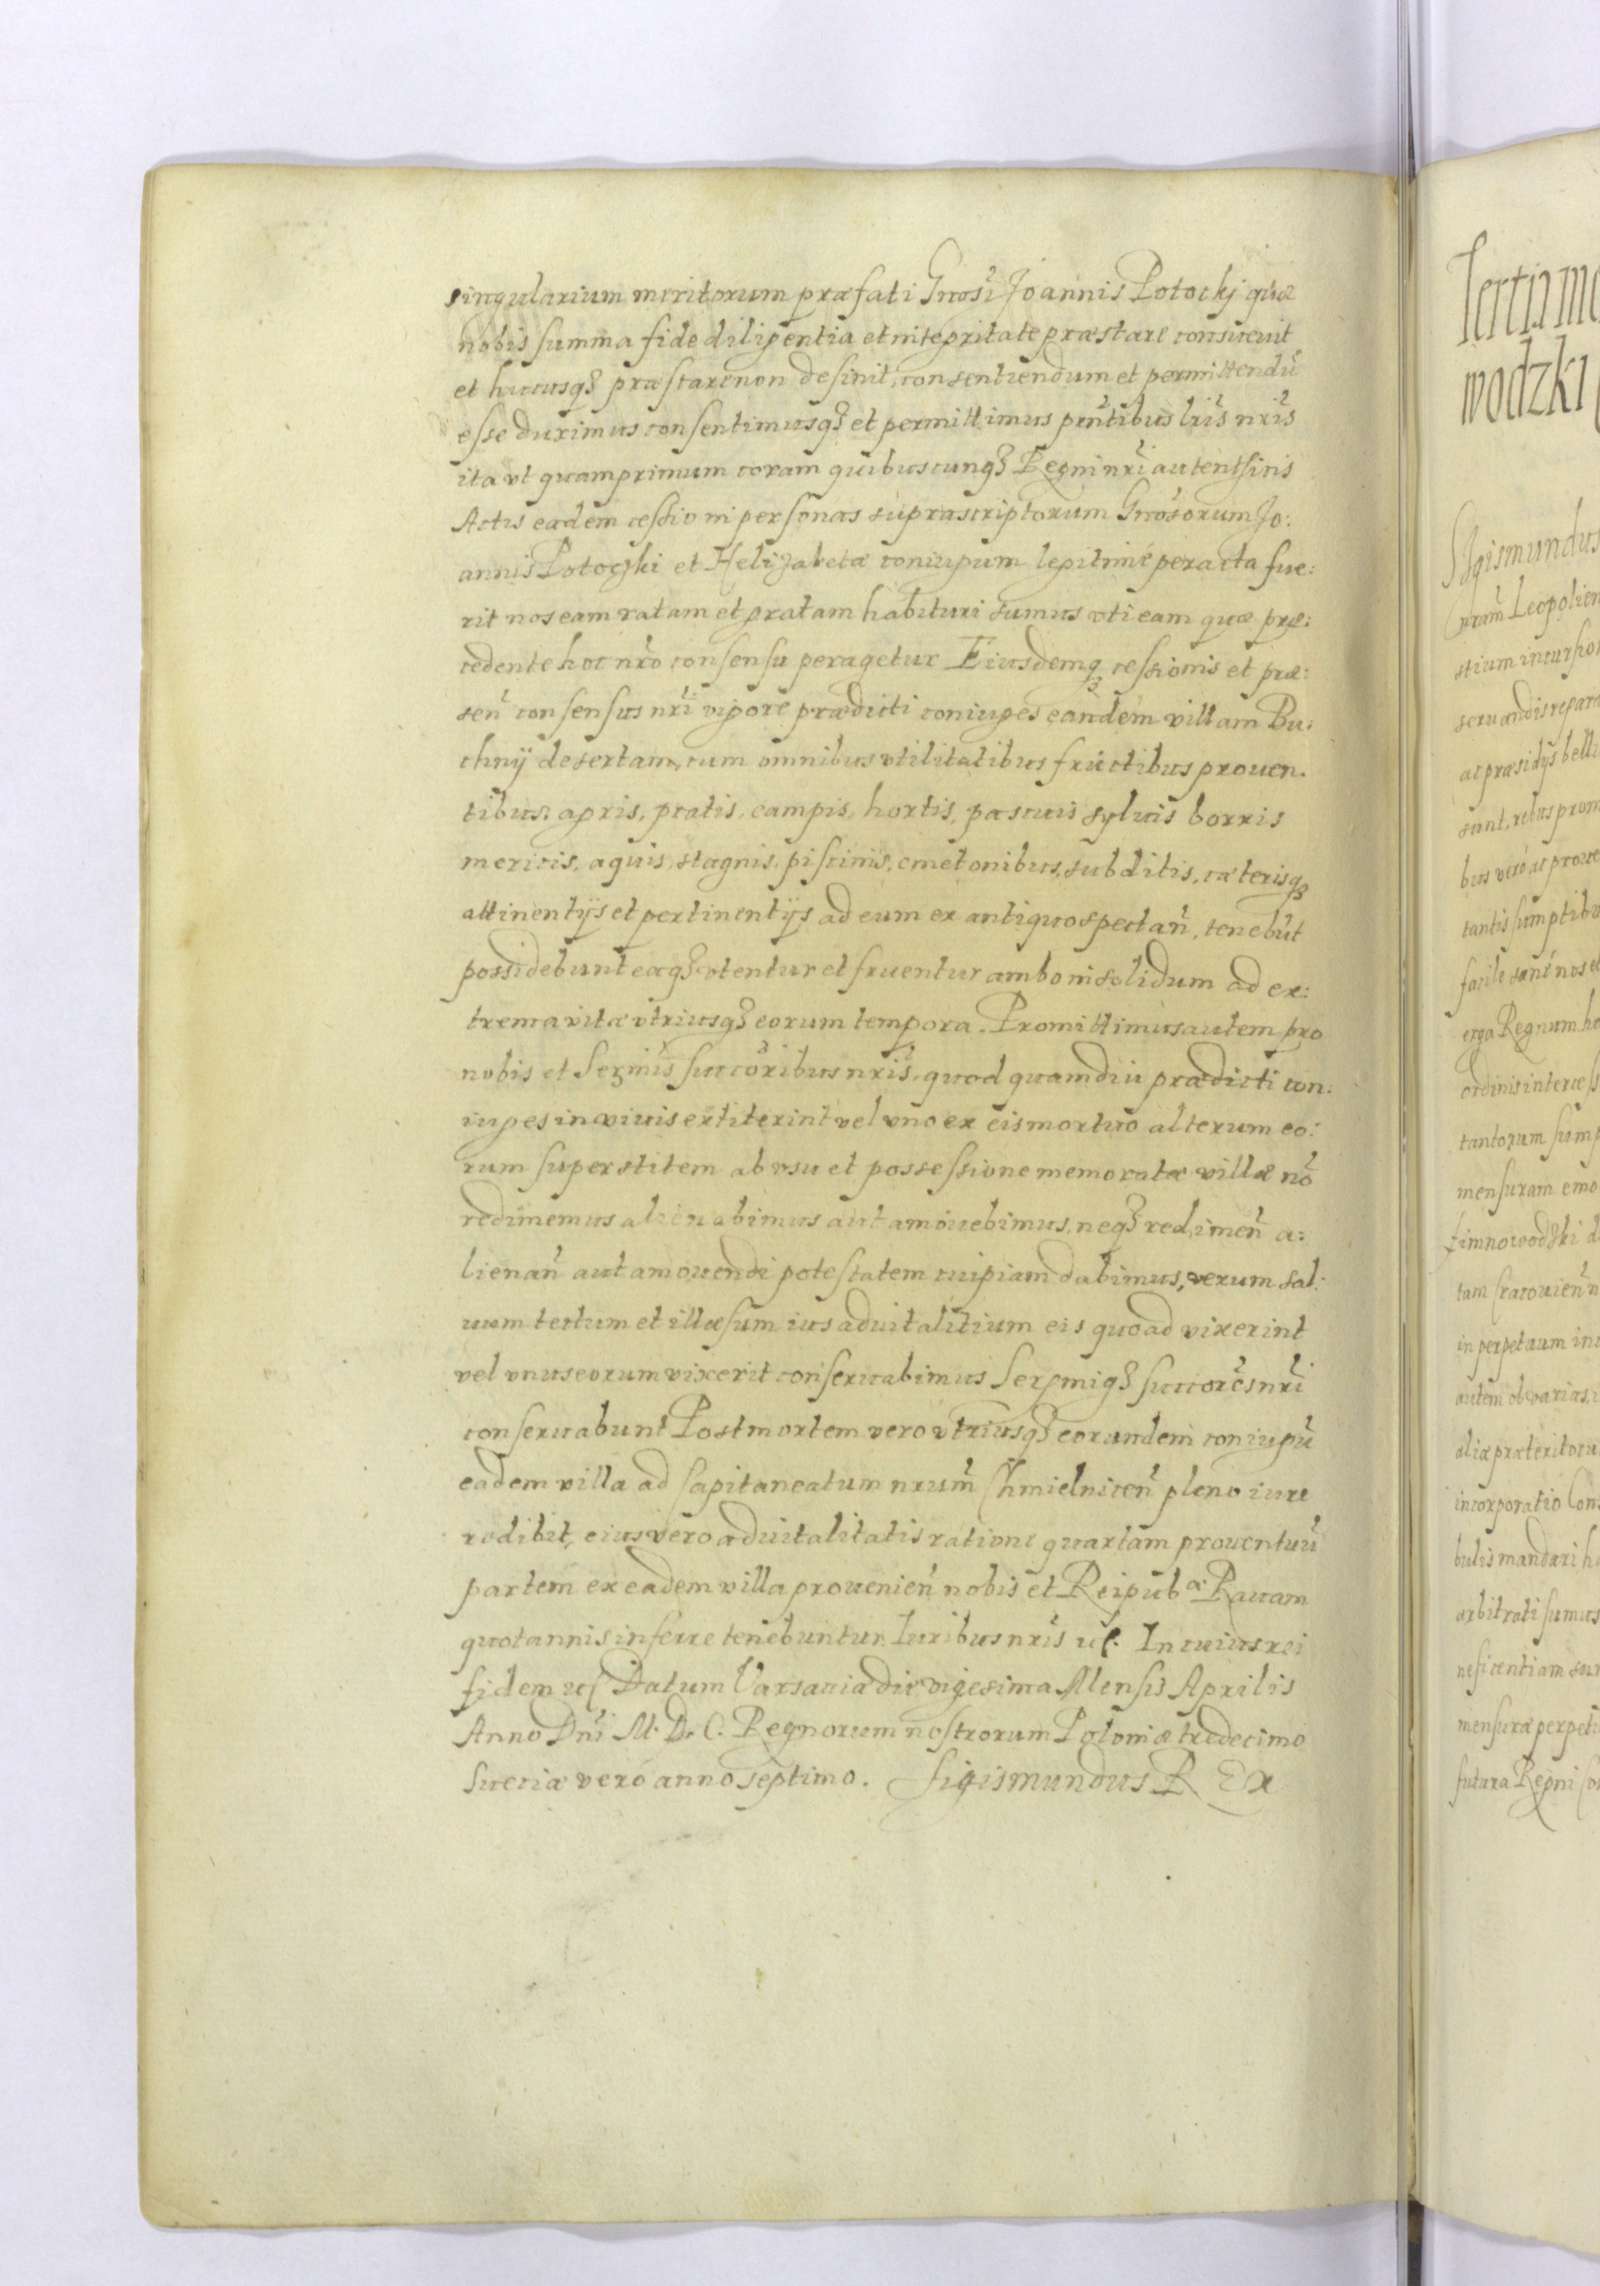 singularium meritorum præfati Gnosi Joannis Potockj quæ
nobis summa fide diligentia et integritate præstare consueuit
et hucusq3 præstare non desinit, consentiendum et permittendū
esse duximus consentimusq3 et permittimus pntibus lris nris
ita vt quamprimum coram quibuscunq3 Regni nri autenthicis
Actis eadem cessio in personas suprascriptorum Gnosorum Jo:
annis Potoczki et Helizabetæ coniugum legitimè peracta fue:
rit nos eam ratam et gratam habituri sumus vti eam quæ præ:
cedente hoc nro consensu peragetur Eiusdemq3 cessionis et præ:
sen consensus nri vigore prædicti coniuges eandem villam Bu:
chnij desertam, cum omnibus vtilitatibus fructibus prouen.
tibus agris, pratis, campis, hortis, pascuis syluis borris
mericis, aquis, stagnis, piscinis, cmetonibus, subditis, cæterisq3
attinentijs et pertinentijs ad eum ex antiquo spectan, tenebūt
possidebunt eaq3 vtentur et fruentur ambo in solidum ad ex:
trema vitæ vtriusq3 eorum tempora. Promittimus autem pro
nobis et Sermis succoribus nris, quod quamdiu prædicti con:
iuges in viuis extiterint vel vno ex eis mortuo alterum eo:
rum superstitem ab vsu et possessione memoratæ villæ nō
redimemus alienabimus aut amouebimus, neq3 redimen a:
lienan aut amouendi potestatem cuipiam dabimus, verum sal:
uum tectum et illæsum ius aduitalitium eis quoad vixerint
vel vnus eorum vixerit conseruabimus Sermiq3 succores nri
conseruabunt Post mortem vero vtriusq3 eorundem coniugū
eadem villa ad Capitaneatum nrum Chmielnicen pleno iure
redibit, eius vero aduitalitatis ratione quartam prouentuū
partem ex eadem villa prouenien nobis et Reipubæ Rauam
quotannis inferre tenebuntur. Iuribus nris etc. In cuius rei
fidem etc Datum Varsauiæ die vigesima Mensis Aprilis
Anno Dni M. D. C. Regnorum nostrorum Poloniæ tredecimo
Sueciæ vero anno septimo. Sigismundus REx
wodzki
Sigismundus
nram Leopolien
stium incursio
seruandis repara
ac præsidijs belli
sunt, rebus prom
bus vero ac proue
tantis sumptibu
facile sanè nos et
erga Regnum ho
ordinis intercess
tantorum sump
mensuram emo
Zimnowodzki d
tam Cracouien n
in perpetuum inc
autem ob varias,
aliæ præteritocu
incorporatio Cons
bulis mandari h
arbitrati sumus
neficentiam
mensuræ perpetu
futura Regni